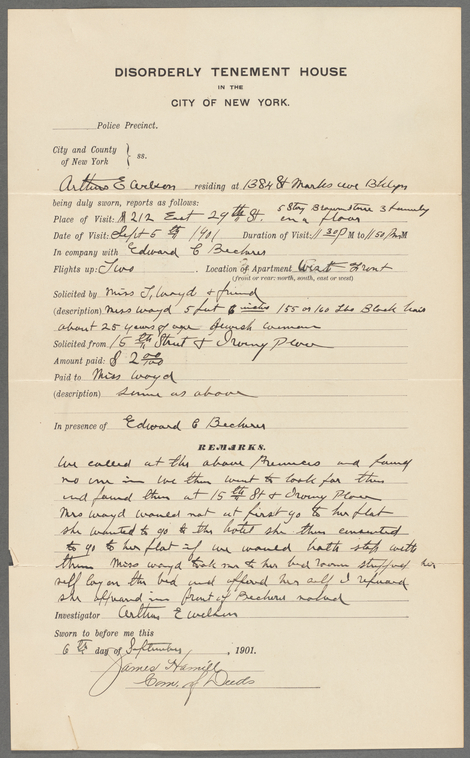 DISORDERLY TENEMENT HOUSE
IN THE
CITY OF NEW YORK.
Police Precinct.
City and County
of New York } ss.
Arthur E residing at 1384 St Marks ave Bklyn
being duly sworn, reports as follows: 5 Story Brownstone 3 family
Place of Visit: 212 East 29th St. on a floor
Date of Visit: Sept 5th 1901 Duration of Visit: 11 30 P M to 11 50 P M
In company with Edward C
Flights up: Two . Location of Apartment West Front
(front or rear: north, south, east or west)
Solicited by Miss Wayd & friend
(description) Miss Wayd 5 feet 6 inches 155 or 160 Lbs Black hair
about 25 years of age Jewish woman
Solicited from 15th Street & Irving Place
Amount paid: $ 2 00/100
Paid to Miss Wayd
(description) same as above
In presence of Edward C
REMARKS.
We called at the above Premices and found
no one in We then went to look for them
and found them at 15th St & Irving Place
Mrs Wayd would not at first go to her flat
she wanted to go to the hotel she then consented
to go to her flat if we would both stop with
them Miss Wayd took me to her bed room stripped her
self lay on the bed and offered her self I refused
she in front of naked
Investigator Arthur E
Sworn to before me this
6th day of September , 1901.
James Hamill
Com. of Deeds